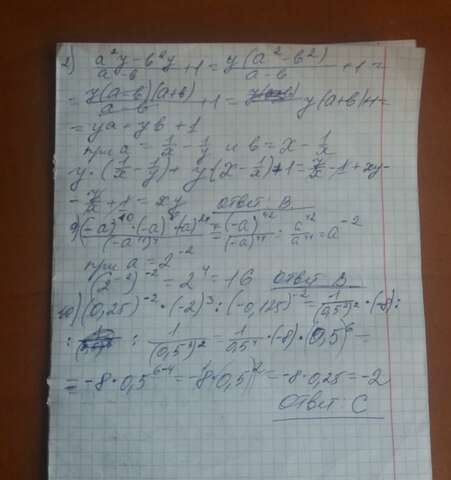 2) (a²y - b²y)/(a - b) + 1 = y(a² - b²)/(a - b) + 1 =
= y(a - b)(a + b)/(a - b) + 1 = y(a + b) + 1 =
= ya + yb + 1
при a = 1/x - 1/y и b = x - 1/x
y · (1/x - 1/y) + y(x - 1/x) + 1 = y/x - 1 + xy -
- y/x + 1 = xy
Ответ: B.
= a⁻²
при a = 2⁻²
(2⁻²)⁻² = 2⁴ = 16 Ответ B
10) (0,25)⁻² · (-2)³ : (-0,125)⁻² = 1/(0,5²)² · (-8) :
: 1/(0,5³)² = 1/0,5⁴ · (-8) · (0,5)⁶ =
= -8 · 0,5⁶⁻⁴ = -8 · 0,5² = -8 · 0,25 = -2
Ответ: C